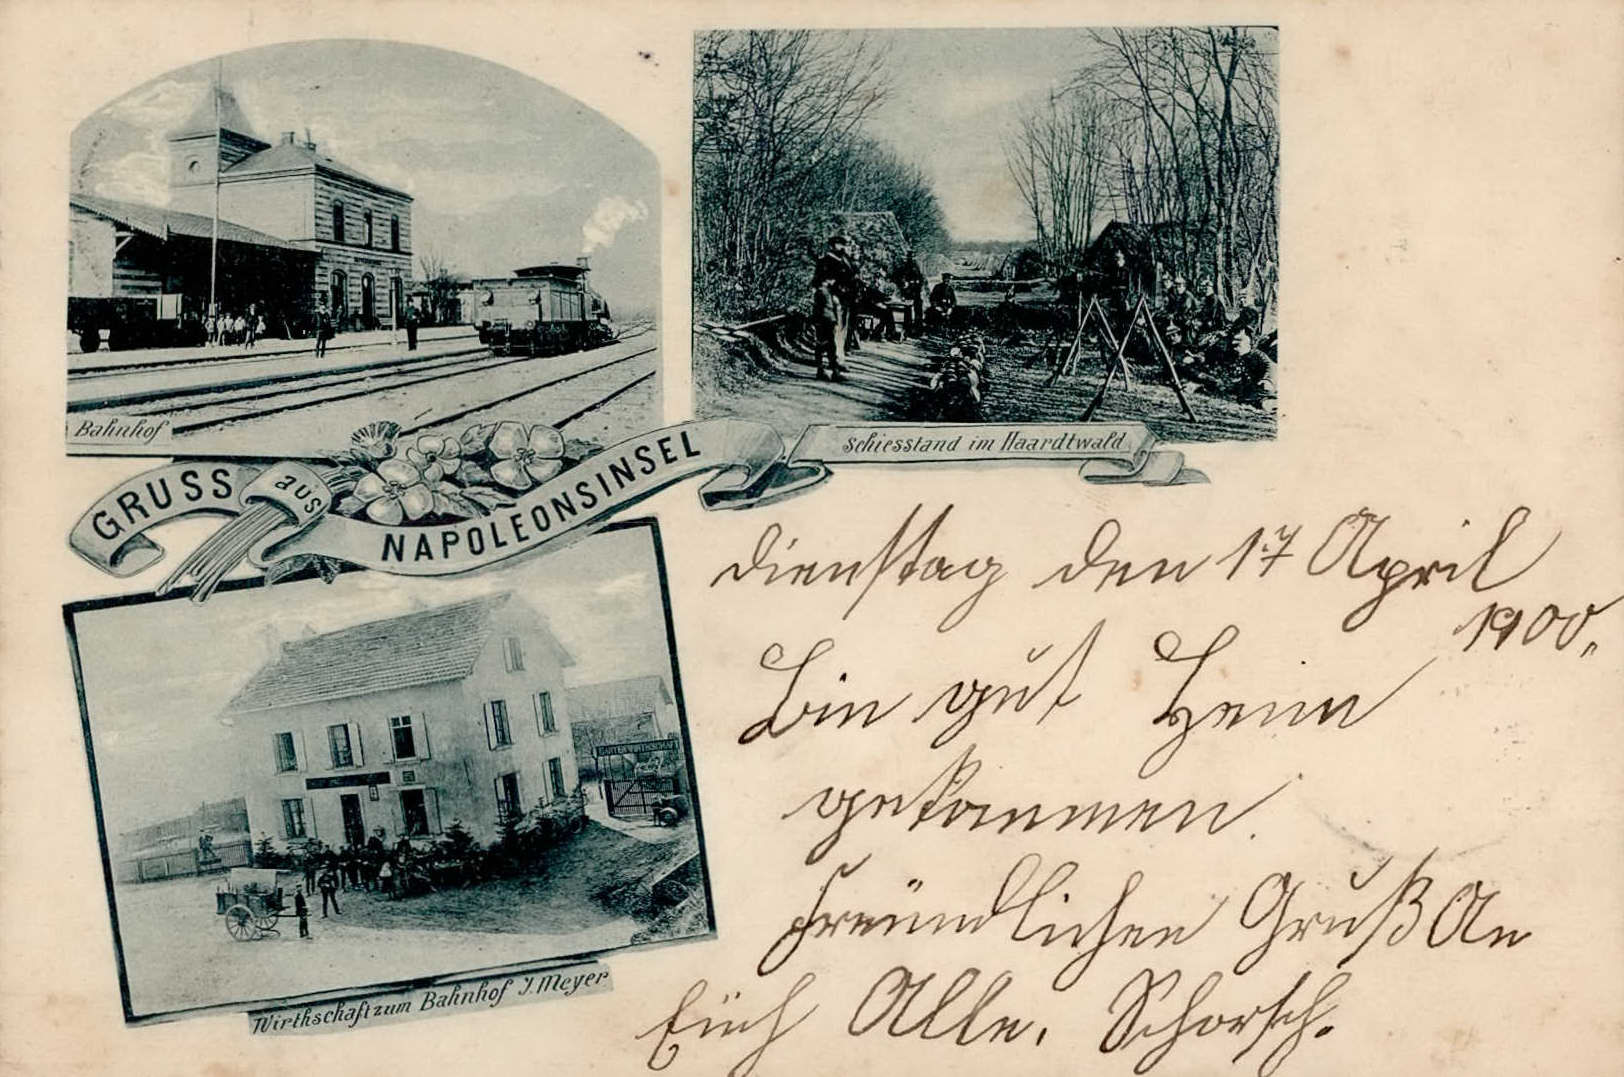 Bahnhof
Schiesstand im Haardtwald
GRUSS aus NAPOLEONSINSEL
GARTENWIRTHSCHAFT
Wirthschaft zum Bahnhof J. Meyer
Dienstag den 17 April
1900.
Bin gut Heim
gekommen.
Freundlichen Gruß An
Euch Alle. Schorsch.